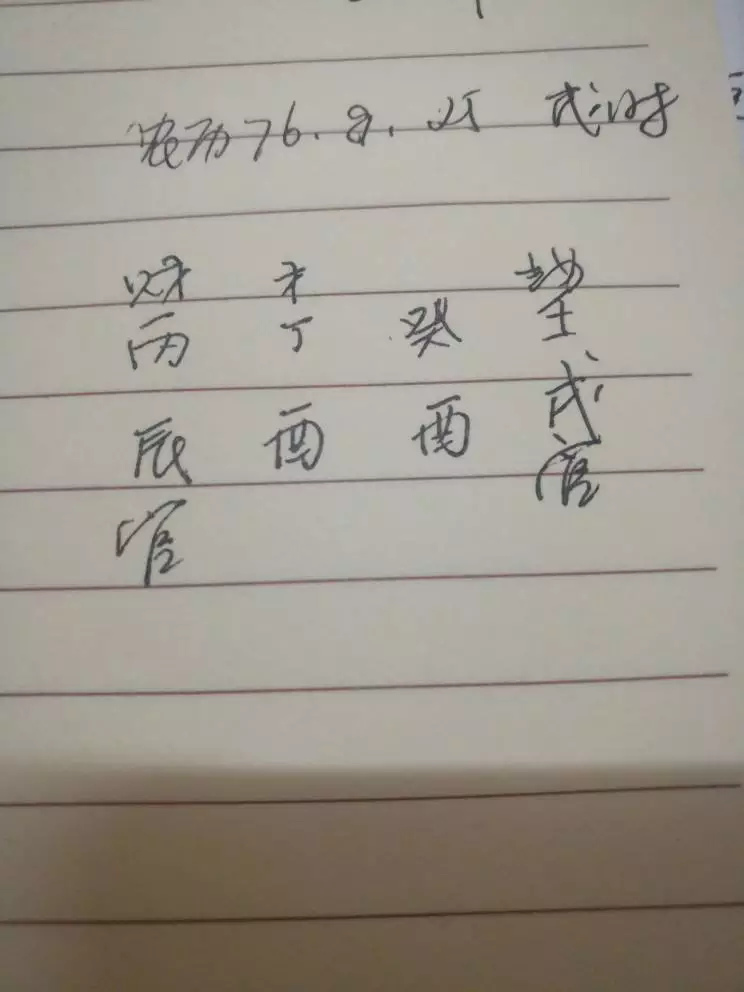 农历76.8.25 戌时
财 才 劫
丙 丁 癸 壬
辰 酉 酉 戌
官 官